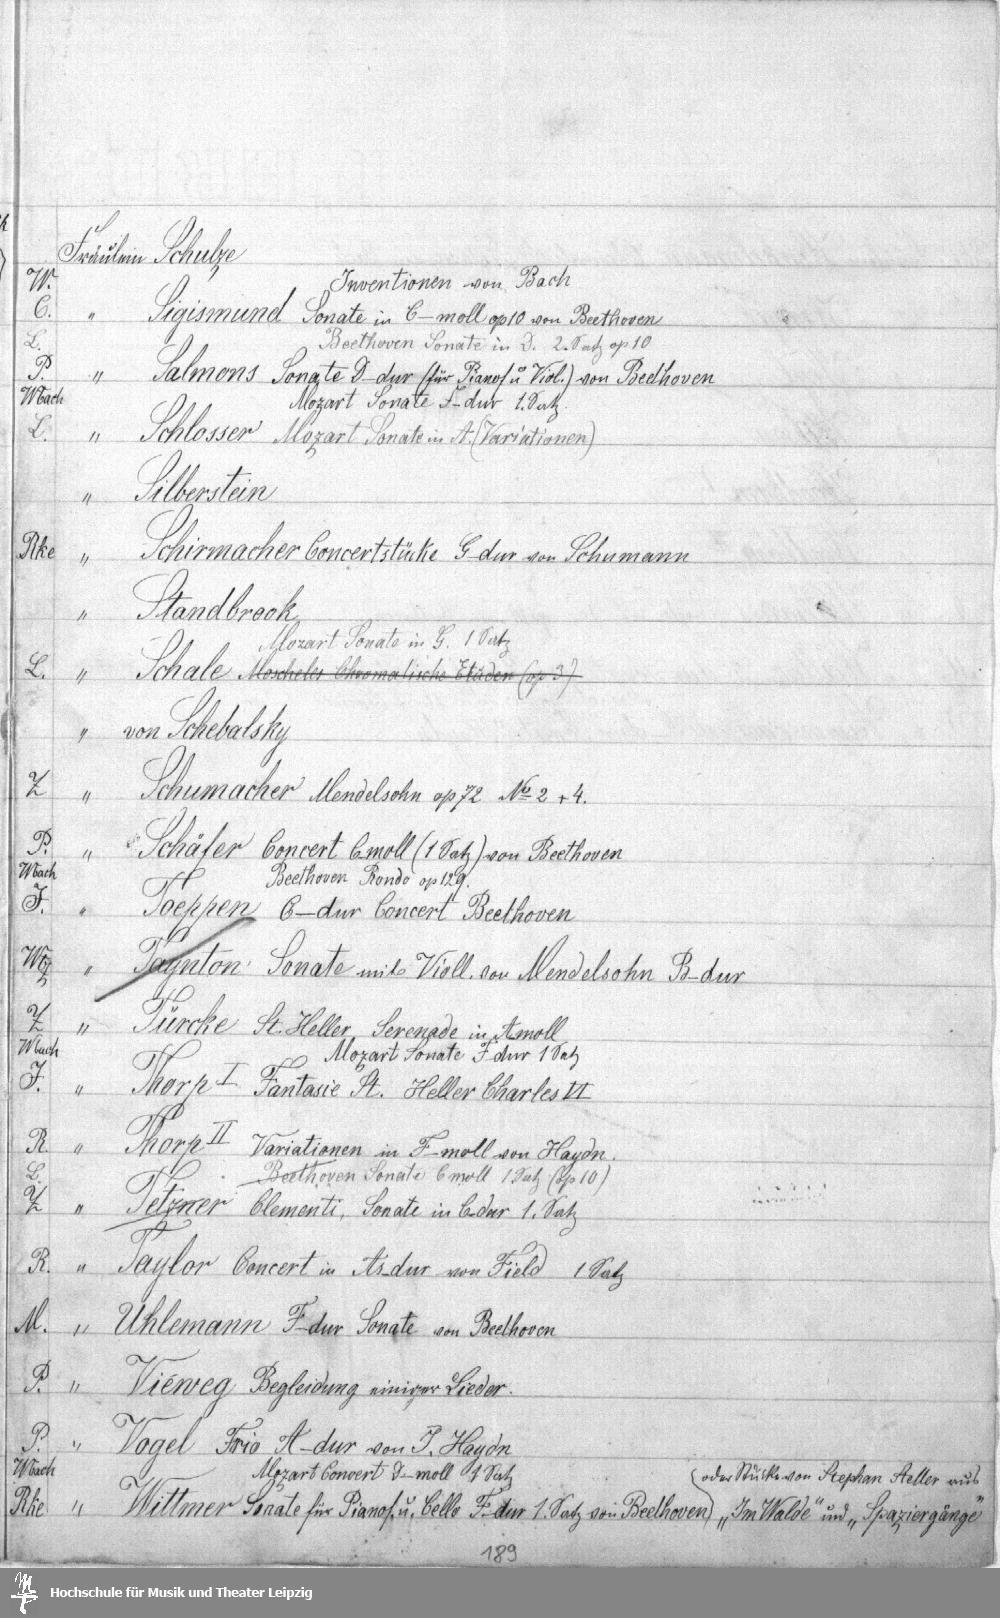 Fräulein Schulze
W. Inventionen von Bach
C. " Sigismund Sonate in C-moll op 10 von Beethoven
L. Beethoven Sonate in D. 2. Satz op 10
P. " Salmons Sonate D-dur (für Pianof. u Viol.) von Beethoven
Wbach Mozart Sonate F-dur 1. Satz.
L. " Schlosser Mozart Sonate in A. (Variationen)
" Silberstein
Rke " Schirmacher Concertstücke G-dur von Schumann
" Standbrook
Mozart Sonate in G. 1 Satz
L. " Schale Moscheles Chromatische Etüden (op 3)
" von Schebalsky
Z " Schumacher Mendelsohn op 72 No 2 + 4.
P. " Schäfer Concert C-moll (1 Satz) von Beethoven
Wbach Beethoven Rondo op 129.
F. " Toeppen C-dur Concert Beethoven
Wtz " Taynton Sonate mit Violl. von Mendelsohn B-dur
Z " Türcke St. Heller, Serenade in A-moll
Wbach Mozart Sonate F dur 1 Satz
F. " Thorp I Fantasie St. Heller Charles VI
R. " Thorp II Variationen in F-moll von Haydn.
L. Beethoven Sonate C moll 1 Satz (op 10)
Z " Tetzner Clementi, Sonate in C-dur 1. Satz
R. " Taylor Concert in As-dur von Field 1 Satz
M. " Uhlemann F-dur Sonate von Beethoven
P. " Vieweg Begleidung einiger Lieder.
P. " Vogel Trio A-dur von J. Haydn
Wbach Mozart Concert D-moll 1 Satz (oder Stücke von Stephan Heller aus
Rke " Wittmer Sonate für Pianof. u. Cello F-dur 1. Satz von Beethoven) „Im Walde" und „Spaziergänge"
189
Hochschule für Musik und Theater Leipzig